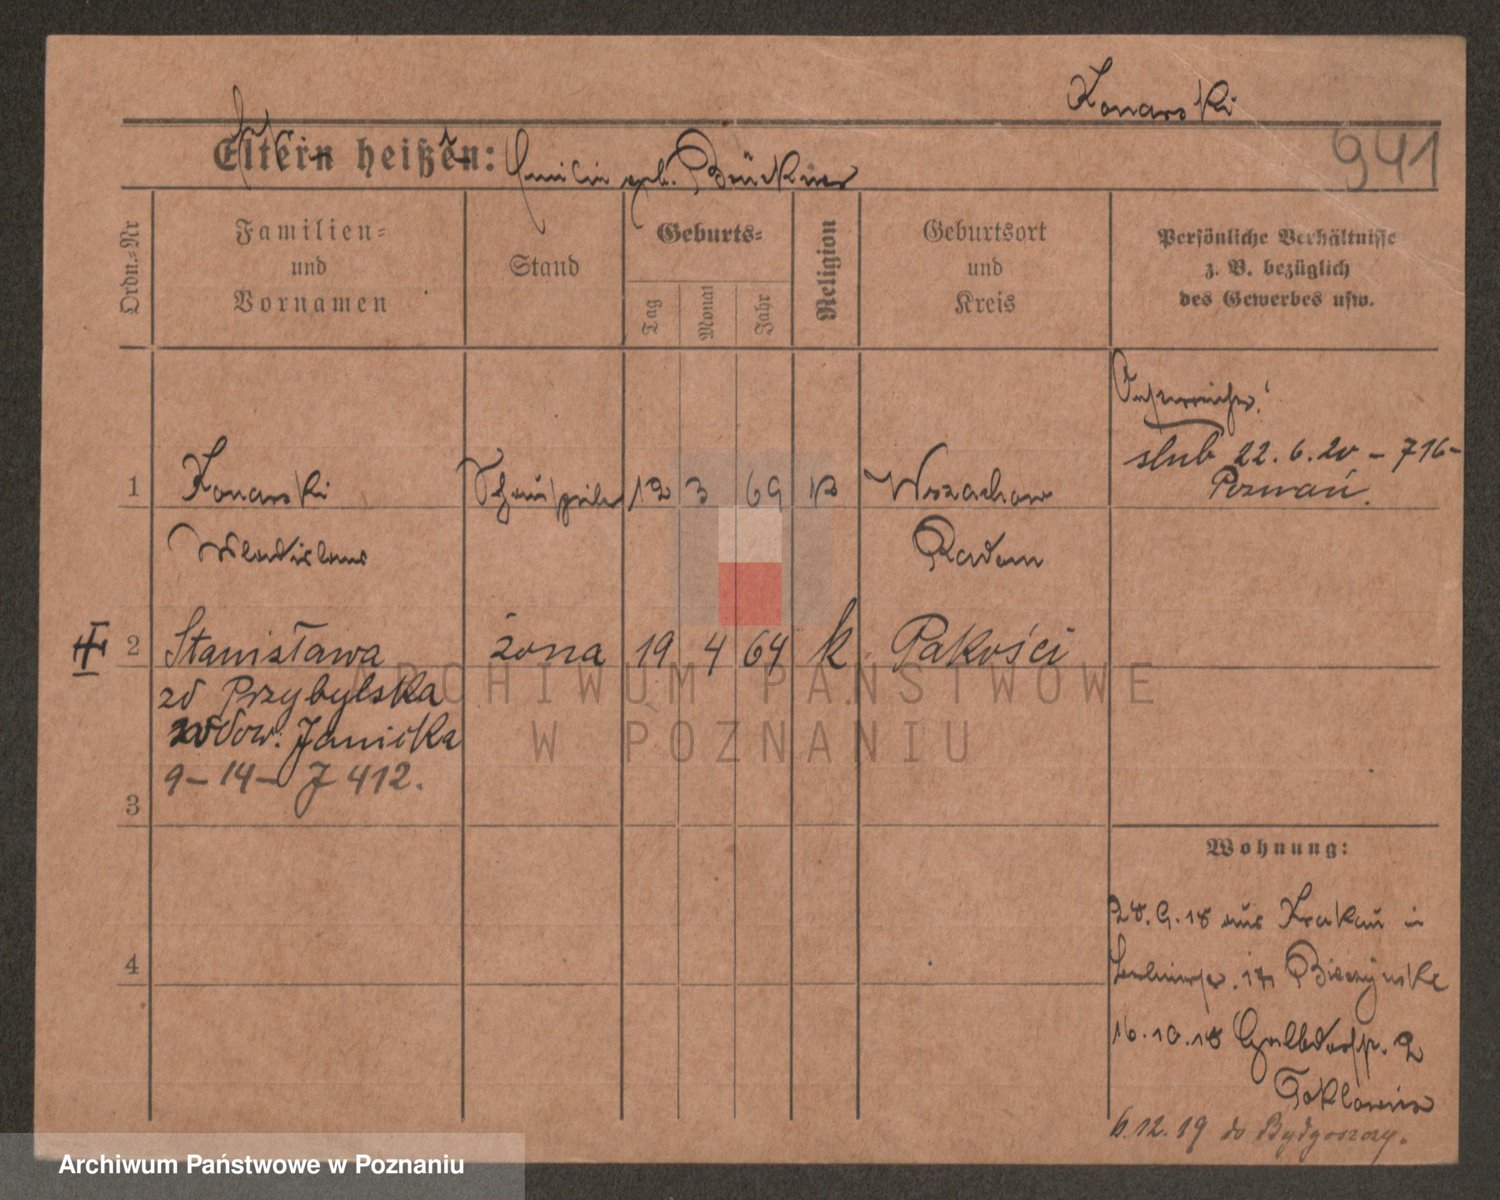 Konarski
941
Eltern heißen: Emilie geb. Brückner
Ordn.-Nr
Familien-
und
Vornamen
Stand
Geburts-
Tag
Monat
Jahr
Religion
Geburtsort
und
Kreis
Persönliche Verhältnisse
z. B. bezüglich
des Gewerbes usw.
Österreicher!
ślub 22.6.20 – 716 –
Poznań.
1 Konarski Schauspieler 12 3 69 Wszachow
Wladislaus Radom
2 Stanisława żona 19 4 64 k Pakości
zd Przybylska
wdow. Janicka
9 – 14 – J 412.
3
4
Wohnung:
28.9.18 aus Krakau in
17 Bieczynski
16.10.18 2
6.12.19 do Bydgoszczy.
ARCHIWUM PAŃSTWOWE
W POZNANIU
Archiwum Państwowe w Poznaniu